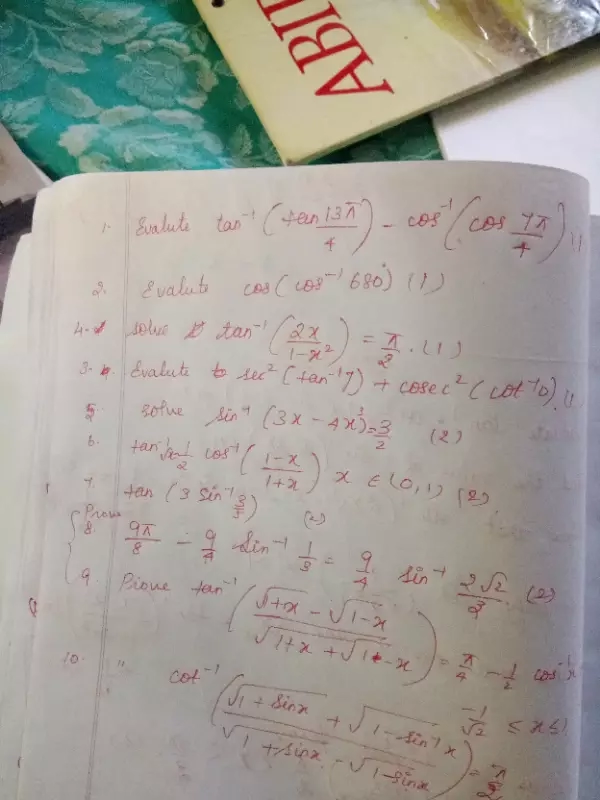 ABI
1. Evalute tan⁻¹ (tan 13π/4) - cos⁻¹ (cos 7π/4) (1
2. Evalute cos(cos⁻¹ 680°) (1)
4. solve tan⁻¹ (2x/1-x²) = π/2 . (1)
3. Evalute sec² (tan⁻¹7) + cosec² (cot⁻¹10). (1
5. solve sin⁻¹ (3x - 4x³) = 3/2 (2)
6. tan⁻¹√x = 1/2 cos⁻¹ (1-x/1+x) x ∈ (0,1) (2)
7. tan (3 sin⁻¹ 3/5) (2)
Prove
8. 9π/8 - 9/4 sin⁻¹ 1/3 = 9/4 sin⁻¹ 2√2/3. (2)
9. Prove tan⁻¹ (√1+x - √1-x / √1+x + √1-x) = π/4 - 1/2 cos⁻¹x
-1/√2 ≤ x ≤ 1
10. " cot⁻¹ (√1+sinx + √1-sinx / √1+sinx - √1-sinx) =